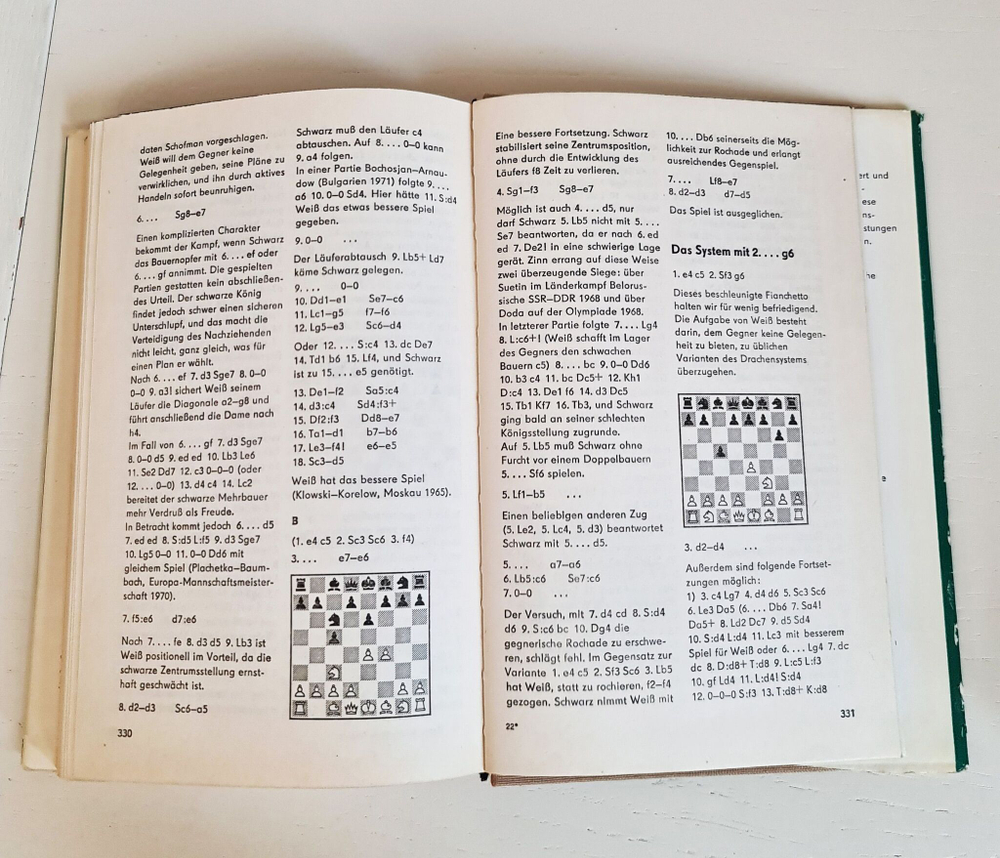 daten Schofman vorgeschlagen.
Weiß will dem Gegner keine
Gelegenheit geben, seine Pläne zu
verwirklichen, und ihn durch aktives
Handeln sofort beunruhigen.
6. . . . Sg8–e7
Einen komplizierten Charakter
bekommt der Kampf, wenn Schwarz
das Bauernopfer mit 6. . . . ef oder
6. . . . gf annimmt. Die gespielten
Partien gestatten kein abschließen-
des Urteil. Der schwarze König
findet jedoch schwer einen sicheren
Unterschlupf, und das macht die
Verteidigung des Nachziehenden
nicht leicht, ganz gleich, was für
einen Plan er wählt.
Nach 6. . . . ef 7. d3 Sge7 8. 0–0
0–0 9. a3! sichert Weiß seinem
Läufer die Diagonale a2–g8 und
führt anschließend die Dame nach
h4.
Im Fall von 6. . . . gf 7. d3 Sge7
8. 0–0 d5 9. ed ed 10. Lb3 Le6
11. Se2 Dd7 12. c3 0–0–0 (oder
12. . . . 0–0) 13. d4 c4 14. Lc2
bereitet der schwarze Mehrbauer
mehr Verdruß als Freude.
In Betracht kommt jedoch 6. . . . d5
7. ed ed 8. S:d5 L:f5 9. d3 Sge7
10. Lg5 0–0 11. 0–0 Dd6 mit
gleichem Spiel (Plachetka-Baum-
bach, Europa-Mannschaftsmeister-
schaft 1970).
7. f5:e6 d7:e6
Nach 7. . . . fe 8. d3 d5 9. Lb3 ist
Weiß positionell im Vorteil, da die
schwarze Zentrumsstellung ernst-
haft geschwächt ist.
8. d2–d3 Sc6–a5
330
Schwarz muß den Läufer c4
abtauschen. Auf 8. . . . 0–0 kann
9. a4 folgen.
In einer Partie Bochosjan-Arnau-
dow (Bulgarien 1971) folgte 9. . . .
a6 10. 0–0 Sd4. Hier hätte 11. S:d4
Weiß das etwas bessere Spiel
gegeben.
9. 0–0 . . .
Der Läuferabtausch 9. Lb5+ Ld7
käme Schwarz gelegen.
9. . . . 0–0
10. Dd1–e1 Se7–c6
11. Lc1–g5 f7–f6
12. Lg5–e3 Sc6–d4
Oder 12. . . . S:c4 13. dc De7
14. Td1 b6 15. Lf4, und Schwarz
ist zu 15. . . . e5 genötigt.
13. De1–f2 Sa5:c4
14. d3:c4 Sd4:f3+
15. Df2:f3 Dd8–e7
16. Ta1–d1 b7–b6
17. Le3–f4! e6–e5
18. Sc3–d5
Weiß hat das bessere Spiel
(Klowski-Korelow, Moskau 1965).
B
(1. e4 c5 2. Sc3 Sc6 3. f4)
3. . . . e7–e6
Eine bessere Fortsetzung. Schwarz
stabilisiert seine Zentrumsposition,
ohne durch die Entwicklung des
Läufers f8 Zeit zu verlieren.
4. Sg1–f3 Sg8–e7
Möglich ist auch 4. . . . d5, nur
darf Schwarz 5. Lb5 nicht mit 5. . . .
Se7 beantworten, da er nach 6. ed
ed 7. De2! in eine schwierige Lage
gerät. Zinn errang auf diese Weise
zwei überzeugende Siege: über
Suetin im Länderkampf Belorus-
sische SSR–DDR 1968 und über
Doda auf der Olympiade 1968.
In letzterer Partie folgte 7. . . . Lg4
8. L:c6+! (Weiß schafft im Lager
des Gegners den schwachen
Bauern c5) 8. . . . bc 9. 0–0 Dd6
10. b3 c4 11. bc Dc5+ 12. Kh1
D:c4 13. De1 f6 14. d3 Dc5
15. Tb1 Kf7 16. Tb3, und Schwarz
ging bald an seiner schlechten
Königsstellung zugrunde.
Auf 5. Lb5 muß Schwarz ohne
Furcht vor einem Doppelbauern
5. . . . Sf6 spielen.
5. Lf1–b5 . . .
Einen beliebigen anderen Zug
(5. Le2, 5. Lc4, 5. d3) beantwortet
Schwarz mit 5. . . . d5.
5. . . . a7–a6
6. Lb5:c6 Se7:c6
7. 0–0 . . .
Der Versuch, mit 7. d4 cd 8. S:d4
d6 9. S:c6 bc 10. Dg4 die
gegnerische Rochade zu erschwe-
ren, schlägt fehl. Im Gegensatz zur
Variante 1. e4 c5 2. Sf3 Sc6 3. Lb5
hat Weiß, statt zu rochieren, f2–f4
gezogen. Schwarz nimmt Weiß mit
22*
10. . . . Db6 seinerseits die Mög-
lichkeit zur Rochade und erlangt
ausreichendes Gegenspiel.
7. . . . Lf8–e7
8. d2–d3 d7–d5
Das Spiel ist ausgeglichen.
Das System mit 2. . . . g6
1. e4 c5 2. Sf3 g6
Dieses beschleunigte Fianchetto
halten wir für wenig befriedigend.
Die Aufgabe von Weiß besteht
darin, dem Gegner keine Gelegen-
heit zu bieten, zu üblichen
Varianten des Drachensystems
überzugehen.
3. d2–d4 . . .
Außerdem sind folgende Fortset-
zungen möglich:
1) 3. c4 Lg7 4. d4 d6 5. Sc3 Sc6
6. Le3 Da5 (6. . . . Db6 7. Sa4!
Da5+ 8. Ld2 Dc7 9. d5 Sd4
10. S:d4 L:d4 11. Lc3 mit besserem
Spiel für Weiß oder 6. . . . Lg4 7. dc
dc 8. D:d8+ T:d8 9. L:c5 L:f3
10. gf Ld4 11. L:d4! S:d4
12. 0–0–0 S:f3 13. T:d8+ K:d8
331
ert und
ese
ns-
stungen
n.
he
e